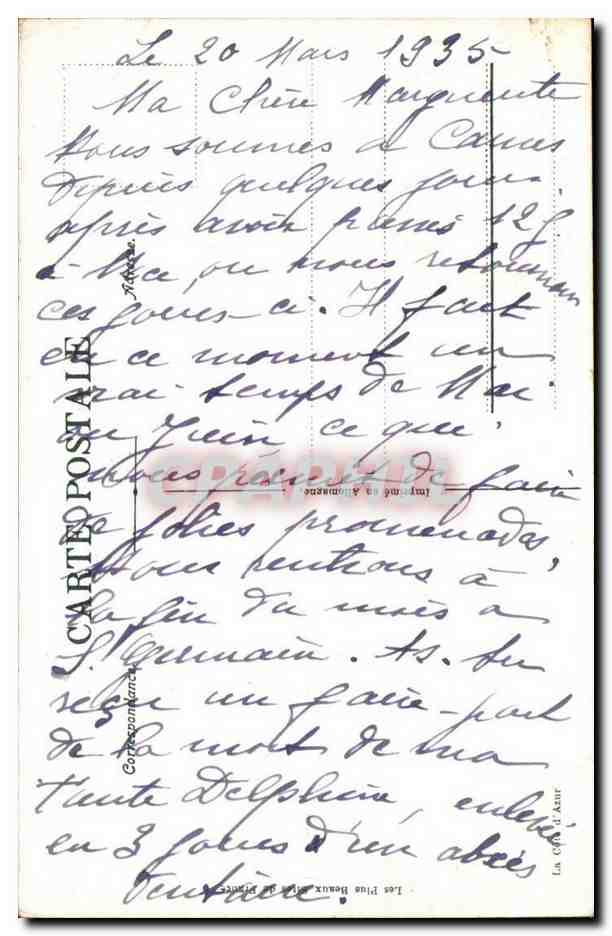 Le 20 Mars 1935
Ma Chère Marguerite
Nous sommes à Cannes
depuis quelques jours
après avoir passé 12 j
à Nice, où nous retournons
ces jours-ci. Il fait
en ce moment un
vrai temps de Mai
ou Juin ce que
nous permet de faire
de jolies promenades,
Nous rentrons à
la fin du mois à
St Germain. As-tu
reçu un faire-part
de la mort de ma
Tante Delphine, enlevée
en 3 jours d'un abcès
dentaire.
CARTE POSTALE
Correspondance
Adresse.
Imprimé en Allemagne.
Les Plus Beaux Sites de France
La Côte d'Azur
CPARAMA